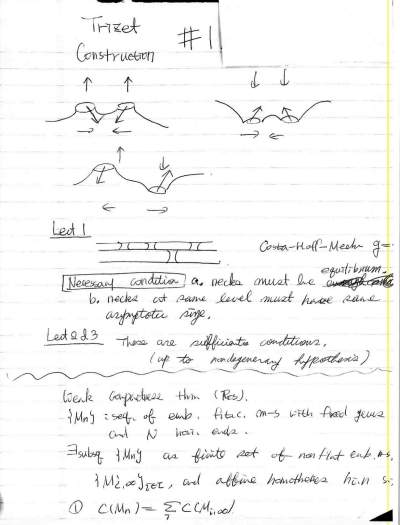 Trizet
Construction
#1
Lect 1
Costa-Hoff-Meeks g=
Necessary condition a. necks must be equilibrium.
b. necks at same level must have same
asymptotic size.
Lect 2 & 3 These are sufficient conditions.
(up to nondegeneracy hypothesis)
Weak Compactness thm (Ros).
{Mn} : seq. of emb. f.t.c. m-s with fixed genus
and N horiz. ends.
∃ subseq {Mn} as finite set of nonflat emb. m-s,
{Mi,∞}i∈I, and affine homotheties hi,n s.
① C(Mn) = Σ C(Mi,∞)